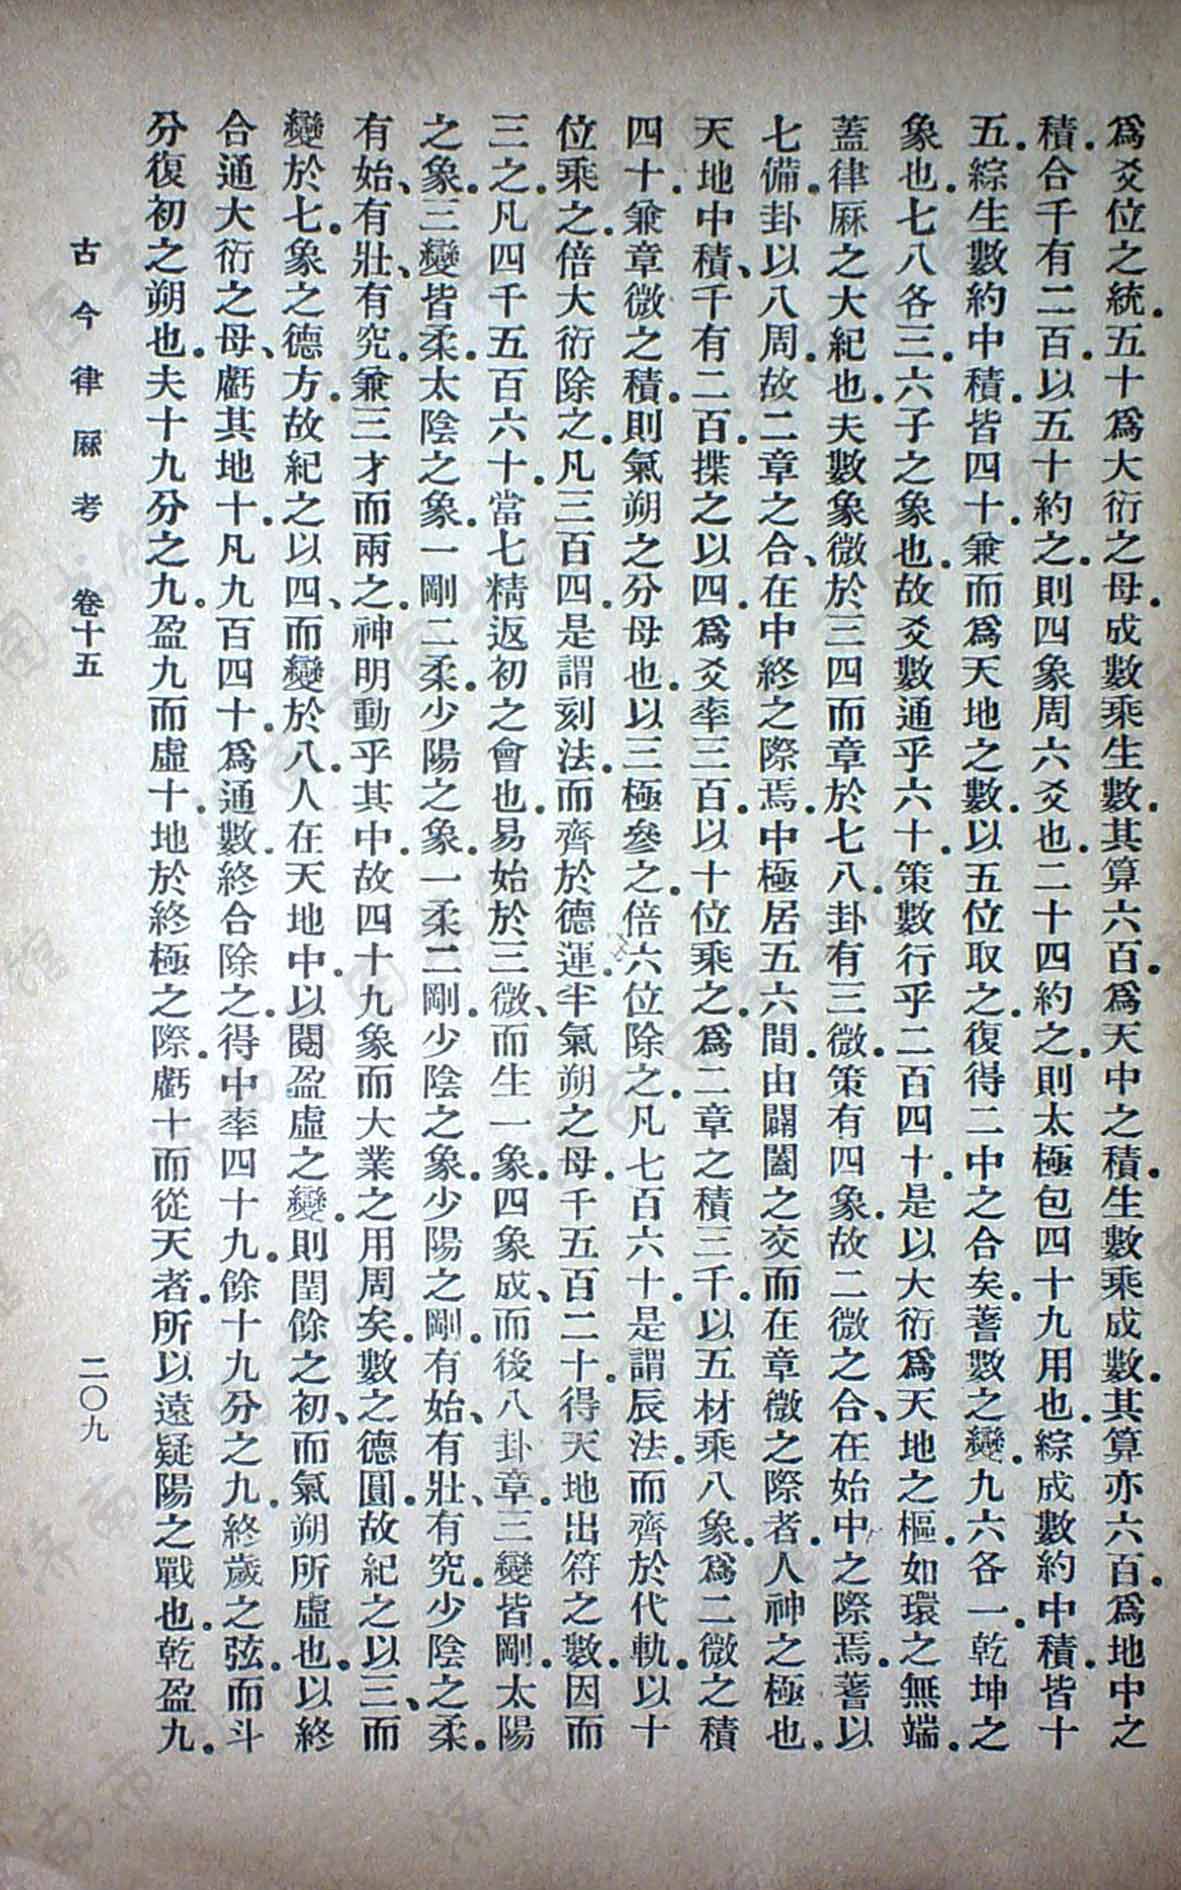 爲爻位之統。五十爲大衍之母。成數乘生數。其算六百。爲天中之積。生數乘成數。其算亦六百。爲地中之
積。合千有二百。以五十約之。則四象周六爻也。二十四約之。則太極包四十九用也。綜成數約中積。皆十
五。綜生數約中積。皆四十。兼而爲天地之數。以五位取之。復得二中之合矣。蓍數之變。九六各一。乾坤之
象也。七八各三。六子之象也。故爻數通乎六十。策數行乎二百四十。是以大衍爲天地之樞。如環之無端。
蓋律厤之大紀也。夫數象微於三四。而章於七八。卦有三微。策有四象。故二微之合、在始中之際焉。蓍以
七備。卦以八周。故二章之合、在中終之際焉。中極居五六間。由闢闔之交。而在章微之際者。人神之極也。
天地中積、千有二百。揲之以四。爲爻率三百。以十位乘之。爲二章之積三千。以五材乘八象。爲二微之積
四十。兼章微之積。則氣朔之分母也。以三極參之。倍六位除之。凡七百六十。是謂辰法。而齊於代軌。以十
位乘之。倍大衍除之。凡三百四。是謂刻法。而齊於德運。半氣朔之母。千五百二十。得天地出符之數。因而
三之。凡四千五百六十。當七精返初之會也。易始於三微、而生一象。四象成、而後八卦章。三變皆剛。太陽
之象。三變皆柔。太陰之象。一剛二柔。少陽之象。一柔二剛。少陰之象。少陽之剛。有始、有壯、有究。少陰之柔。
有始、有壯、有究。兼三才而兩之。神明動乎其中。故四十九象而大業之用周矣。數之德圓。故紀之以三、而
變於七。象之德方。故紀之以四、而變於八。人在天地中。以閱盈虛之變。則閏餘之初、而氣朔所虛也。以終
合通大衍之母、虧其地十。凡九百四十。爲通數。終合除之。得中率四十九。餘十九分之九。終歲之弦。而斗
分復初之朔也。夫十九分之九。盈九而虛十。地於終極之際。虧十而從天者。所以遠疑陽之戰也。乾盈九。
古今律厤考 卷十五 二〇九